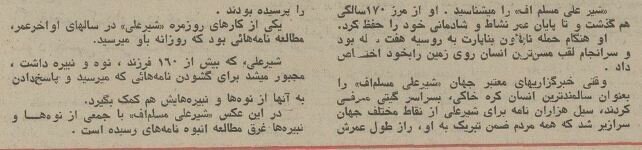 «شیر علی مسلم اف» را میشناسید . او از مرز ۱۷۰سالگی
هم گذشت و تا پایان عمر نشاط و شادمانی خود را حفظ کرد.
او هنگام حمله ناپلئون بناپارت به روسیه هفت له بود
و سرانجام لقب مسن‌ترین انسان روی زمین رابخود اختصاص
داد .
وقتی خبرگزاریهای معتبر جهان «شیرعلی مسلم‌اف» را
بعنوان سالمندترین انسان کره خاکی، بسراسر گیتی معرفی
کردند، سیل هزاران نامه برای شیرعلی از نقاط مختلف جهان
سرازیر شد که همه مردم ضمن تبریک به او، راز طول عمرش
را پرسیده بودند .
یکی از کارهای روزمره «شیرعلی» در سالهای اواخرعمر،
مطالعه نامه‌هائی بود که روزانه باو میرسید.
شیرعلی، که بیش از ۱۶۰ فرزند ، نوه و نبیره داشت ،
مجبور میشد برای گشودن نامه‌هائی که میرسید و پاسخ‌دادن
به آنها از نوه‌ها و نبیره‌هایش هم کمک بگیرد.
در این عکس «شیرعلی مسلم‌اف» با جمعی از نوه‌ها و
نبیره‌ها غرق مطالعه انبوه نامه‌های رسیده است .